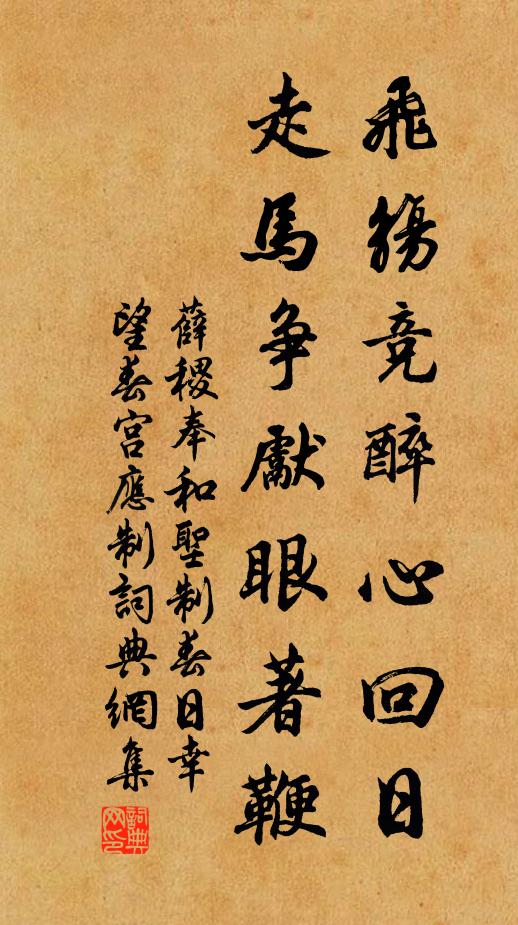 飛觴竞醉心回日
走馬争獻眼著鞭
薛稷奉和聖制春日幸
望春宫應制詞典網集
詞典
网印